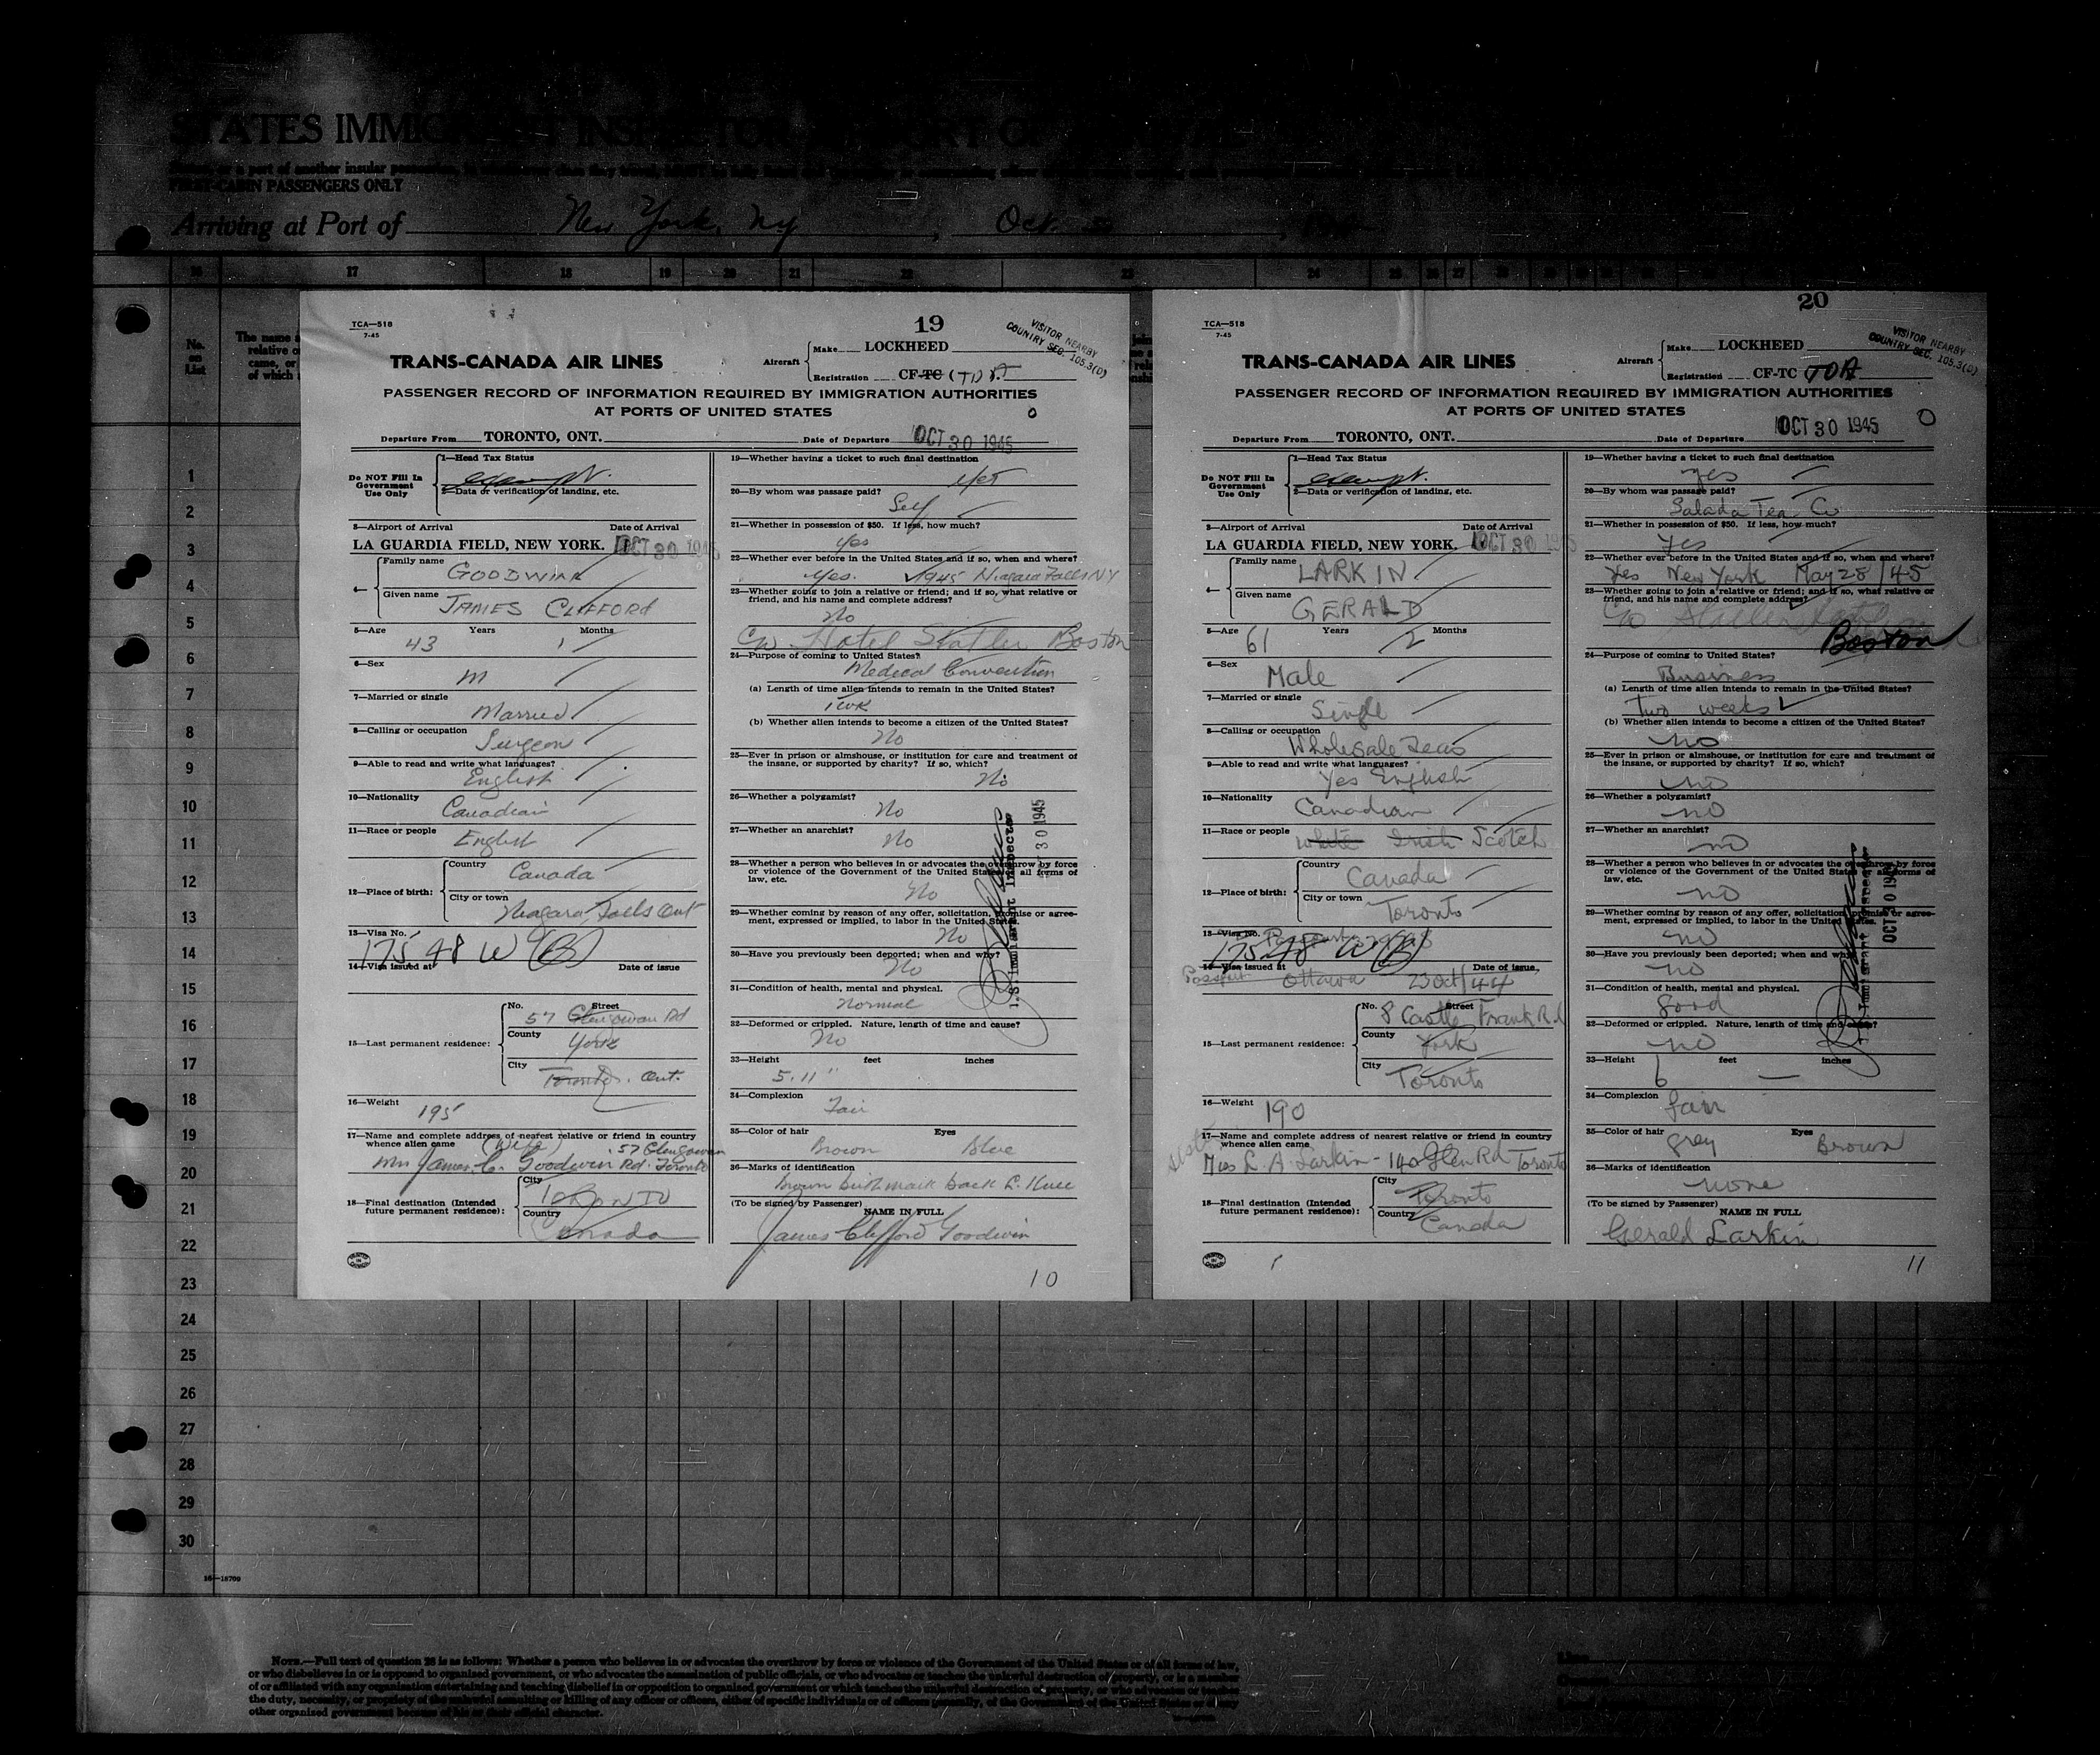 STATES IMMIGRANT INSPECTOR
FIRST-CABIN PASSENGERS ONLY
Arriving at Port of New York, Ny , Oct
16 17 18 19 20 21 22 23 24 25 26 27
No. on List
TCA—518
7-45
19
VISITOR NEARBY
COUNTRY SEC. 105.3(D)
TRANS-CANADA AIR LINES
Aircraft Make LOCKHEED
Registration CF-TC
PASSENGER RECORD OF INFORMATION REQUIRED BY IMMIGRATION AUTHORITIES
AT PORTS OF UNITED STATES
Departure From TORONTO, ONT. Date of Departure OCT 30 1945
Do NOT Fill In Government Use Only
1—Head Tax Status
exempt.
2—Data or verification of landing, etc.
3—Airport of Arrival Date of Arrival
LA GUARDIA FIELD, NEW YORK. OCT 30 1945
4— Family name GOODWIN
Given name JAMES CLIFFORD
5—Age 43 Years 1 Months
6—Sex M
7—Married or single Married
8—Calling or occupation Surgeon
9—Able to read and write what languages? English
10—Nationality Canadian
11—Race or people English
12—Place of birth: Country Canada
City or town Niagara Falls Ont
13—Visa No. 175.48 W (B)
14—Visa issued at Date of issue
15—Last permanent residence: No. Street 57 Glengowan Rd
County York
City Toronto. Ont.
16—Weight 195
17—Name and complete address of nearest relative or friend in country
whence alien came (Wife) 57 Glengowan
Mrs James C. Goodwin Rd. Toronto
18—Final destination (Intended future permanent residence): City TORONTO
Country Canada
19—Whether having a ticket to such final destination
Yes
20—By whom was passage paid?
Self
21—Whether in possession of $50. If less, how much?
Yes
22—Whether ever before in the United States and if so, when and where?
Yes. 1945 Niagara Falls NY
23—Whether going to join a relative or friend; and if so, what relative or
friend, and his name and complete address?
No
c/o Hotel Statler Boston
24—Purpose of coming to United States?
Medical Convention
(a) Length of time alien intends to remain in the United States?
1 wk
(b) Whether alien intends to become a citizen of the United States?
No
25—Ever in prison or almshouse, or institution for care and treatment of
the insane, or supported by charity? If so, which?
No
26—Whether a polygamist?
No
27—Whether an anarchist?
No
28—Whether a person who believes in or advocates the overthrow by force
or violence of the Government of the United States or all forms of
law, etc.
No
29—Whether coming by reason of any offer, solicitation, promise or agree-
ment, expressed or implied, to labor in the United States.
No
30—Have you previously been deported; when and why?
No
31—Condition of health, mental and physical.
Normal
32—Deformed or crippled. Nature, length of time and cause?
No
33—Height feet inches
5.11"
34—Complexion
Fair
35—Color of hair Eyes
Brown Blue
36—Marks of identification
Brown birthmark back L. Knee
(To be signed by Passenger) NAME IN FULL
James Clifford Goodwin
U.S. Immigrant Inspector
OCT 30 1945
10
TCA—518
7-45
20
VISITOR NEARBY
COUNTRY SEC. 105.3(D)
TRANS-CANADA AIR LINES
Aircraft Make LOCKHEED
Registration CF-TC
PASSENGER RECORD OF INFORMATION REQUIRED BY IMMIGRATION AUTHORITIES
AT PORTS OF UNITED STATES
Departure From TORONTO, ONT. Date of Departure OCT 30 1945
Do NOT Fill In Government Use Only
1—Head Tax Status
exempt.
2—Data or verification of landing, etc.
3—Airport of Arrival Date of Arrival
LA GUARDIA FIELD, NEW YORK. OCT 30 1945
4— Family name LARKIN
Given name GERALD
5—Age 61 Years 2 Months
6—Sex Male
7—Married or single Single
8—Calling or occupation Wholesale Teas
9—Able to read and write what languages? Yes English
10—Nationality Canadian
11—Race or people White Irish Scotch
12—Place of birth: Country Canada
City or town Toronto
13—Visa No. 175.48 W (B)
14—Visa issued at Date of issue
Passport Ottawa 23 Oct/44
15—Last permanent residence: No. Street 8 Castle Frank Rd
County York
City Toronto
16—Weight 190
17—Name and complete address of nearest relative or friend in country
whence alien came
sister
Miss L. A. Larkin - 140 Glen Rd Toronto
18—Final destination (Intended future permanent residence): City Toronto
Country Canada
19—Whether having a ticket to such final destination
Yes
20—By whom was passage paid?
Salada Tea Co
21—Whether in possession of $50. If less, how much?
Yes
22—Whether ever before in the United States and if so, when and where?
Yes New York May 28/45
23—Whether going to join a relative or friend; and if so, what relative or
friend, and his name and complete address?
c/o Statler Hotel
Boston
24—Purpose of coming to United States?
Business
(a) Length of time alien intends to remain in the United States?
Two weeks
(b) Whether alien intends to become a citizen of the United States?
no
25—Ever in prison or almshouse, or institution for care and treatment of
the insane, or supported by charity? If so, which?
no
26—Whether a polygamist?
no
27—Whether an anarchist?
no
28—Whether a person who believes in or advocates the overthrow by force
or violence of the Government of the United States or all forms of
law, etc.
no
29—Whether coming by reason of any offer, solicitation, promise or agree-
ment, expressed or implied, to labor in the United States.
no
30—Have you previously been deported; when and why?
no
31—Condition of health, mental and physical.
Good
32—Deformed or crippled. Nature, length of time and cause?
no
33—Height feet inches
6 —
34—Complexion
fair
35—Color of hair Eyes
grey Brown
36—Marks of identification
none
(To be signed by Passenger) NAME IN FULL
Gerald Larkin
OCT 30 1945
11
1
2
3
4
5
6
7
8
9
10
11
12
13
14
15
16
17
18
19
20
21
22
23
24
25
26
27
28
29
30
16—18709
NOTE.—Full text of question 28 is as follows: Whether a person who believes in or advocates the overthrow by force or violence of the Government of the United States or of all forms of law,
or who disbelieves in or is opposed to organized government, or who advocates the assassination of public officials, or who advocates or teaches the unlawful destruction of property, or is a member
of or affiliated with any organization entertaining and teaching disbelief in or opposition to organized government or which teaches the unlawful destruction of property, or who advocates or teaches
the duty, necessity, or propriety of the unlawful assaulting or killing of any officer or officers, either of specific individuals or of officers generally, of the Government of the United States or of any
other organized government because of his or their official character.